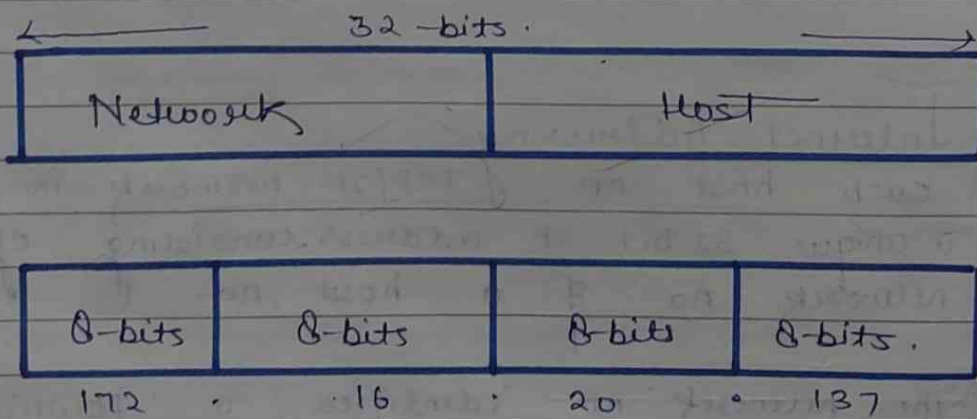 32-bits.
Network Host
8-bits 8-bits 8-bits 8-bits.
172 . 16 . 20 . 137